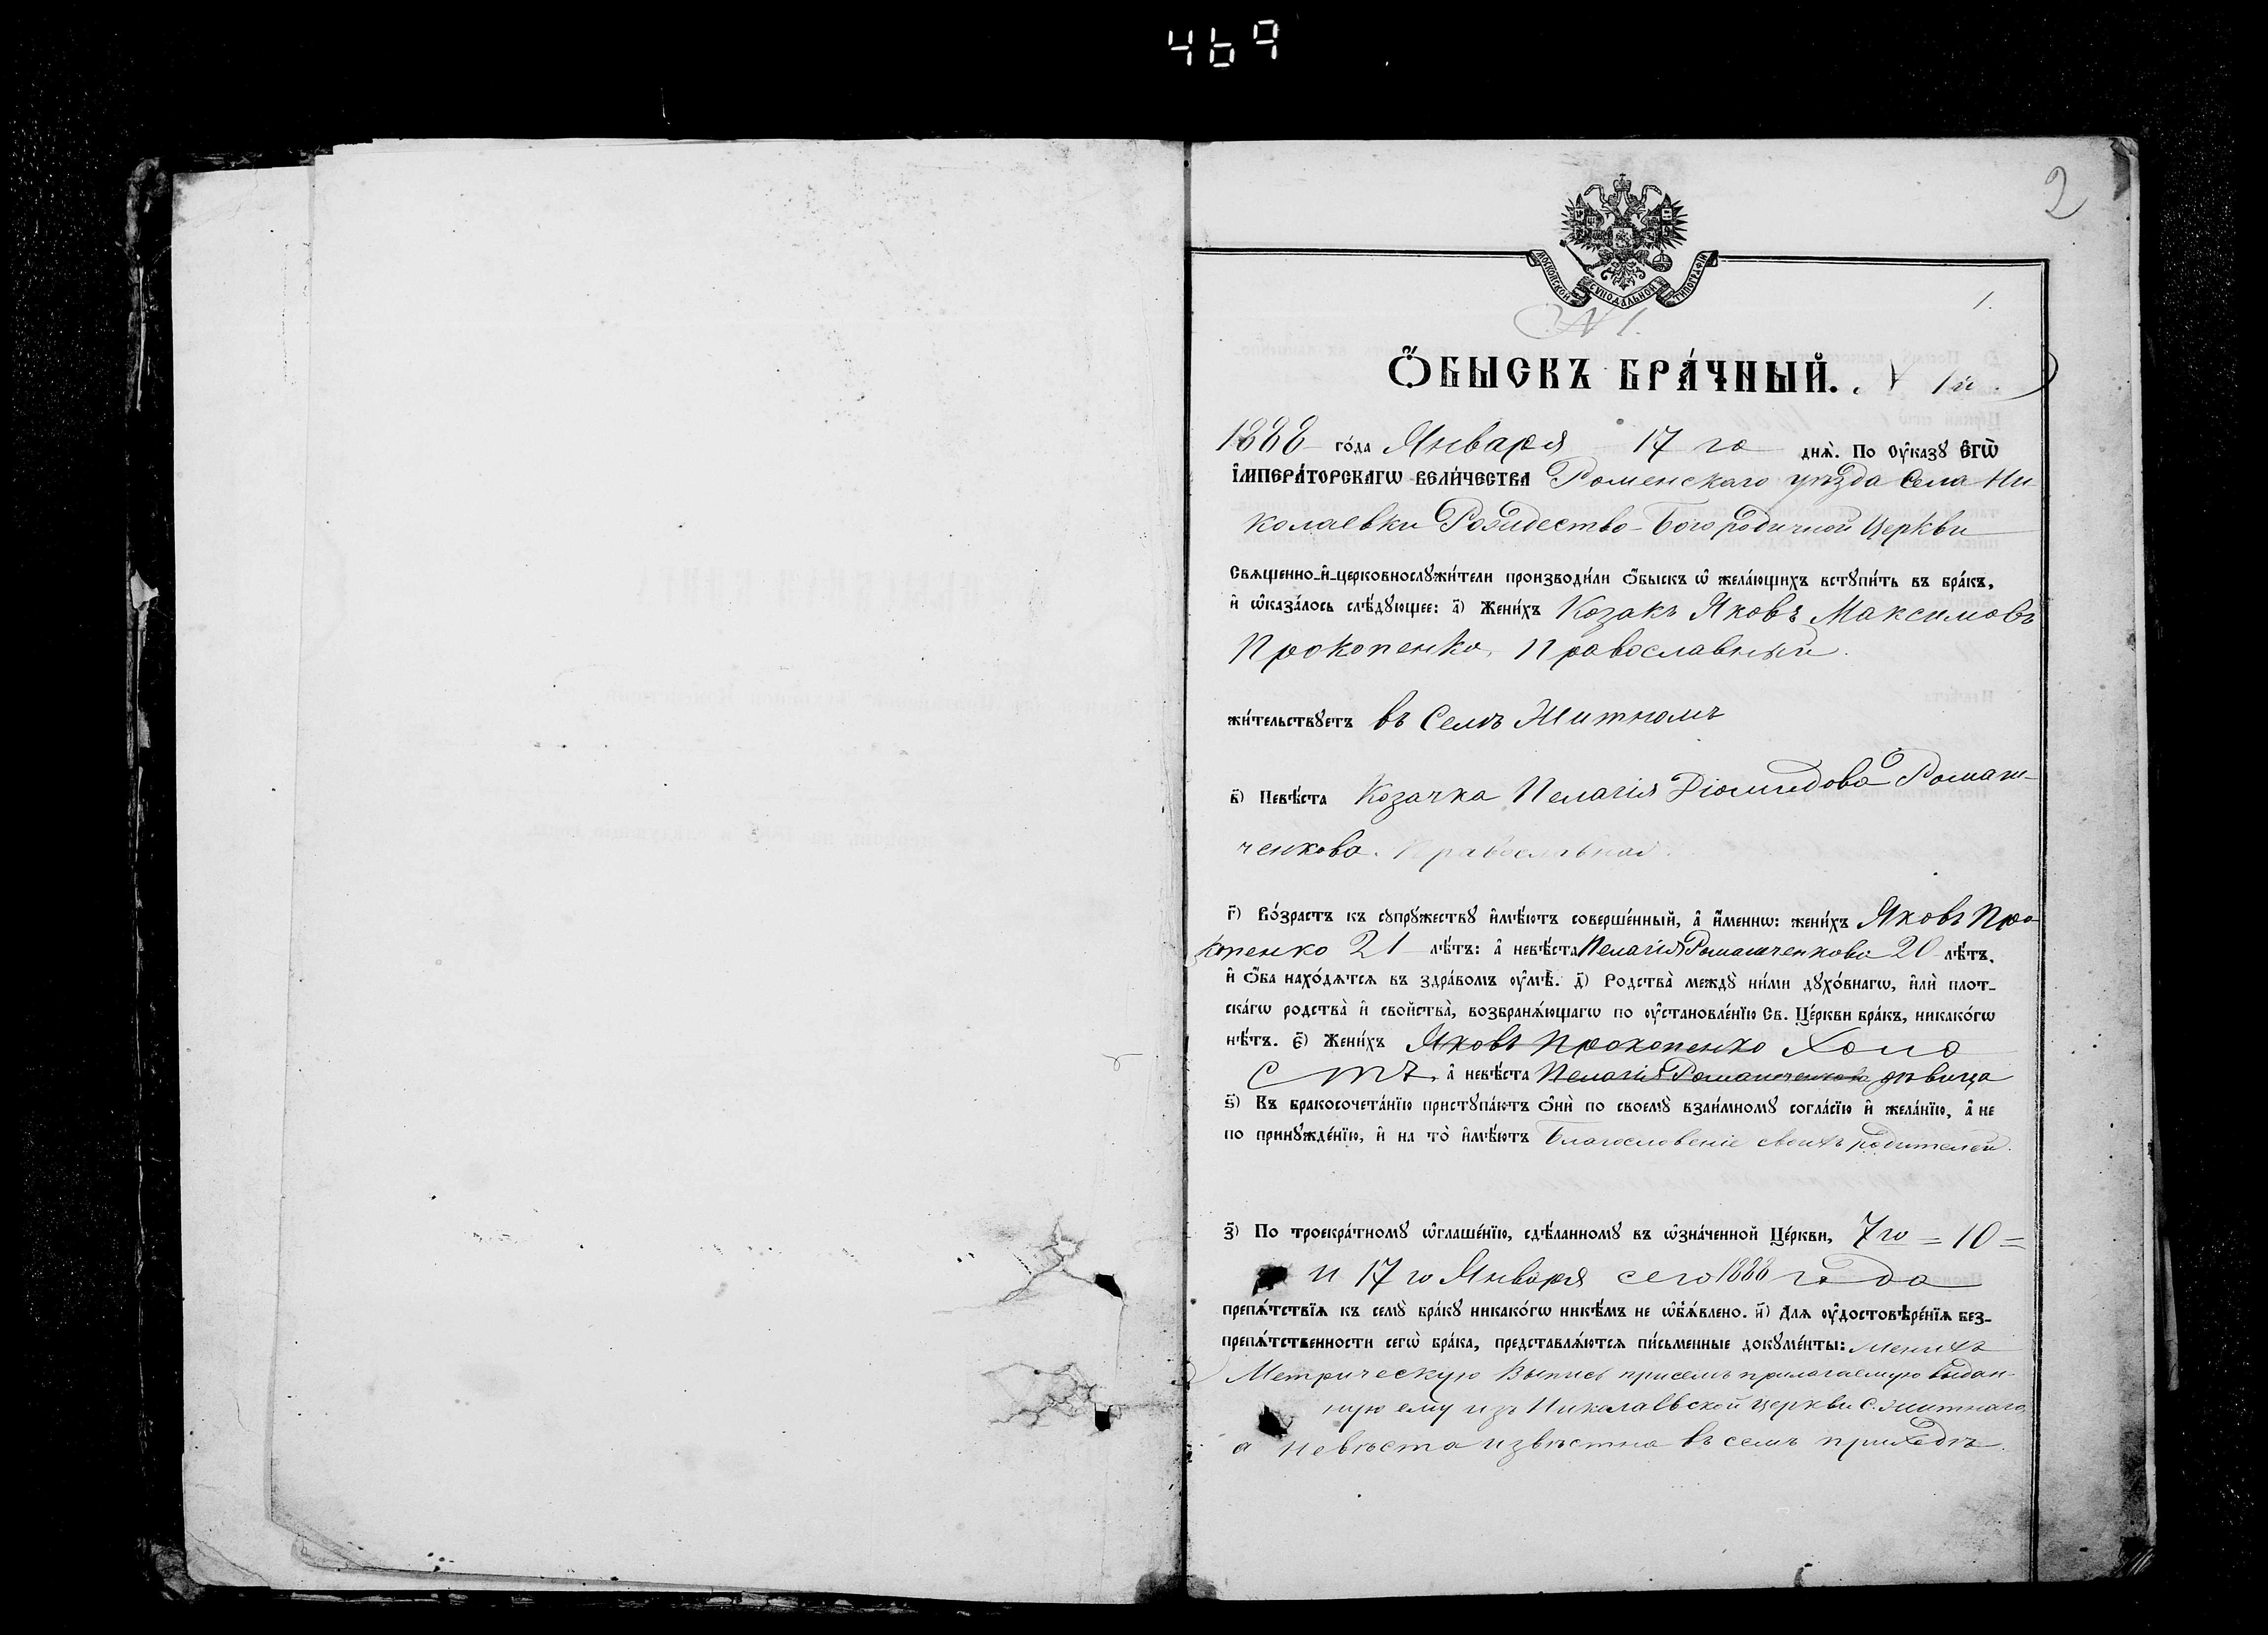 469
2
МОСКОВСКОЙ СУНОДАЛЬНОЙ ТИПОГРАФІИ
1.
№ 1.
Ѻ҆́БЫСКЪ БРА́ЧНЫЙ. № 1й.
1888 го́да Января 17 го днѧ̀. По Оу҆ка́зꙋ Е҆ГѠ̀
І҆МПЕРА́ТОРСКАГѠ ВЕЛИ́ЧЕСТВА Роменскаго уѣзда Села Ни-
колаевки Рождество-Богородичной Церкви
Свѧщенно-и҆-церковнослꙋжи́тели производи́ли ѻ҆́быскъ ѡ҆ жела́ющихъ встꙋпи́ть въ бра́къ,
и҆ ѡ҆каза́лось слѣ́дꙋющее: а҃) Жени́хъ Козакъ Яковъ Максимовъ
Прокопенко, Православный.
жи́тельствꙋетъ въ Селѣ Житномъ
в҃) Невѣ́ста Козачка Пелагія Діомидова Ромаш-
ченкова. Православная.
г҃) Во́зрастъ къ сꙋпрꙋ́жествꙋ и҆мѣ́ютъ соверше́нный, а҆ и҆́меннѡ: жени́хъ Яковъ Про-
копенко 21 лѣ́тъ: а҆ невѣ́ста Пелагія Ромашченкова 20 лѣ́тъ.
и҆ ѻ҆́ба нахо́дѧтсѧ въ здра́вомъ оу҆мѣ̀. д҃) Родства̀ междꙋ̀ ни́ми дꙋхо́внагѡ, и҆лѝ плот-
ска́гѡ родства̀ и҆ свойства̀, возбранѧ́ющагѡ по оу҆становле́нїю Св. Це́ркви бра́къ, никако́гѡ
нѣ́тъ. є҃) Жени́хъ Яковъ Прокопенко Холо
стъ, а҆ невѣ́ста Пелагія Ромашченкова дѣвица
ѕ҃) Къ бракосочета́нїю пристꙋпа́ютъ ѻ҆нѝ по своемꙋ̀ взаи́мномꙋ согла́сїю и҆ жела́нїю, а҆ не
по принꙋжде́нїю, и҆ на то̀ и҆мѣ́ютъ Благословеніе своихъ родителей.
з҃) По троекра́тномꙋ ѡ҆глаше́нїю, сдѣ́ланномꙋ въ ѡ҆зна́ченной Це́ркви, 7го = 10 =
и 17 го Января сего 1888 года
препѧ́тствїѧ къ семꙋ̀ бра́кꙋ никако́гѡ никѣ́мъ не ѡ҆б̾ѧ́влено. и҃) Длѧ оу҆достовѣре́нїѧ без-
препѧ́тственности сегѡ̀ бра́ка, представлѧ́ютсѧ пи́сьменные докꙋме́нты: Женихъ
Метрическую Выпись присемъ прилагаемую выдан-
ную ему изъ Николаевской Церкви С. Житнаго,
а невѣста извѣстна въ семъ приходѣ.